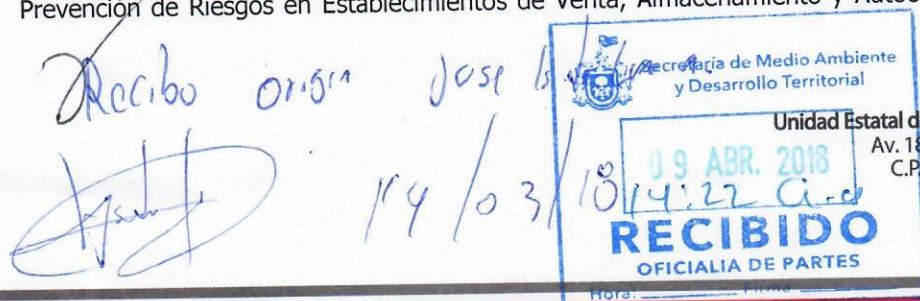 Prevención de Riesgos en Establecimientos de Venta, Almacenamiento y Autoc
Recibo Origin Jose
Secretaría de Medio Ambiente
y Desarrollo Territorial
Unidad Estatal d
Av. 18
C.P.
09 ABR. 2018
14/03/18
14:22
RECIBIDO
OFICIALIA DE PARTES
Hora: Firma: